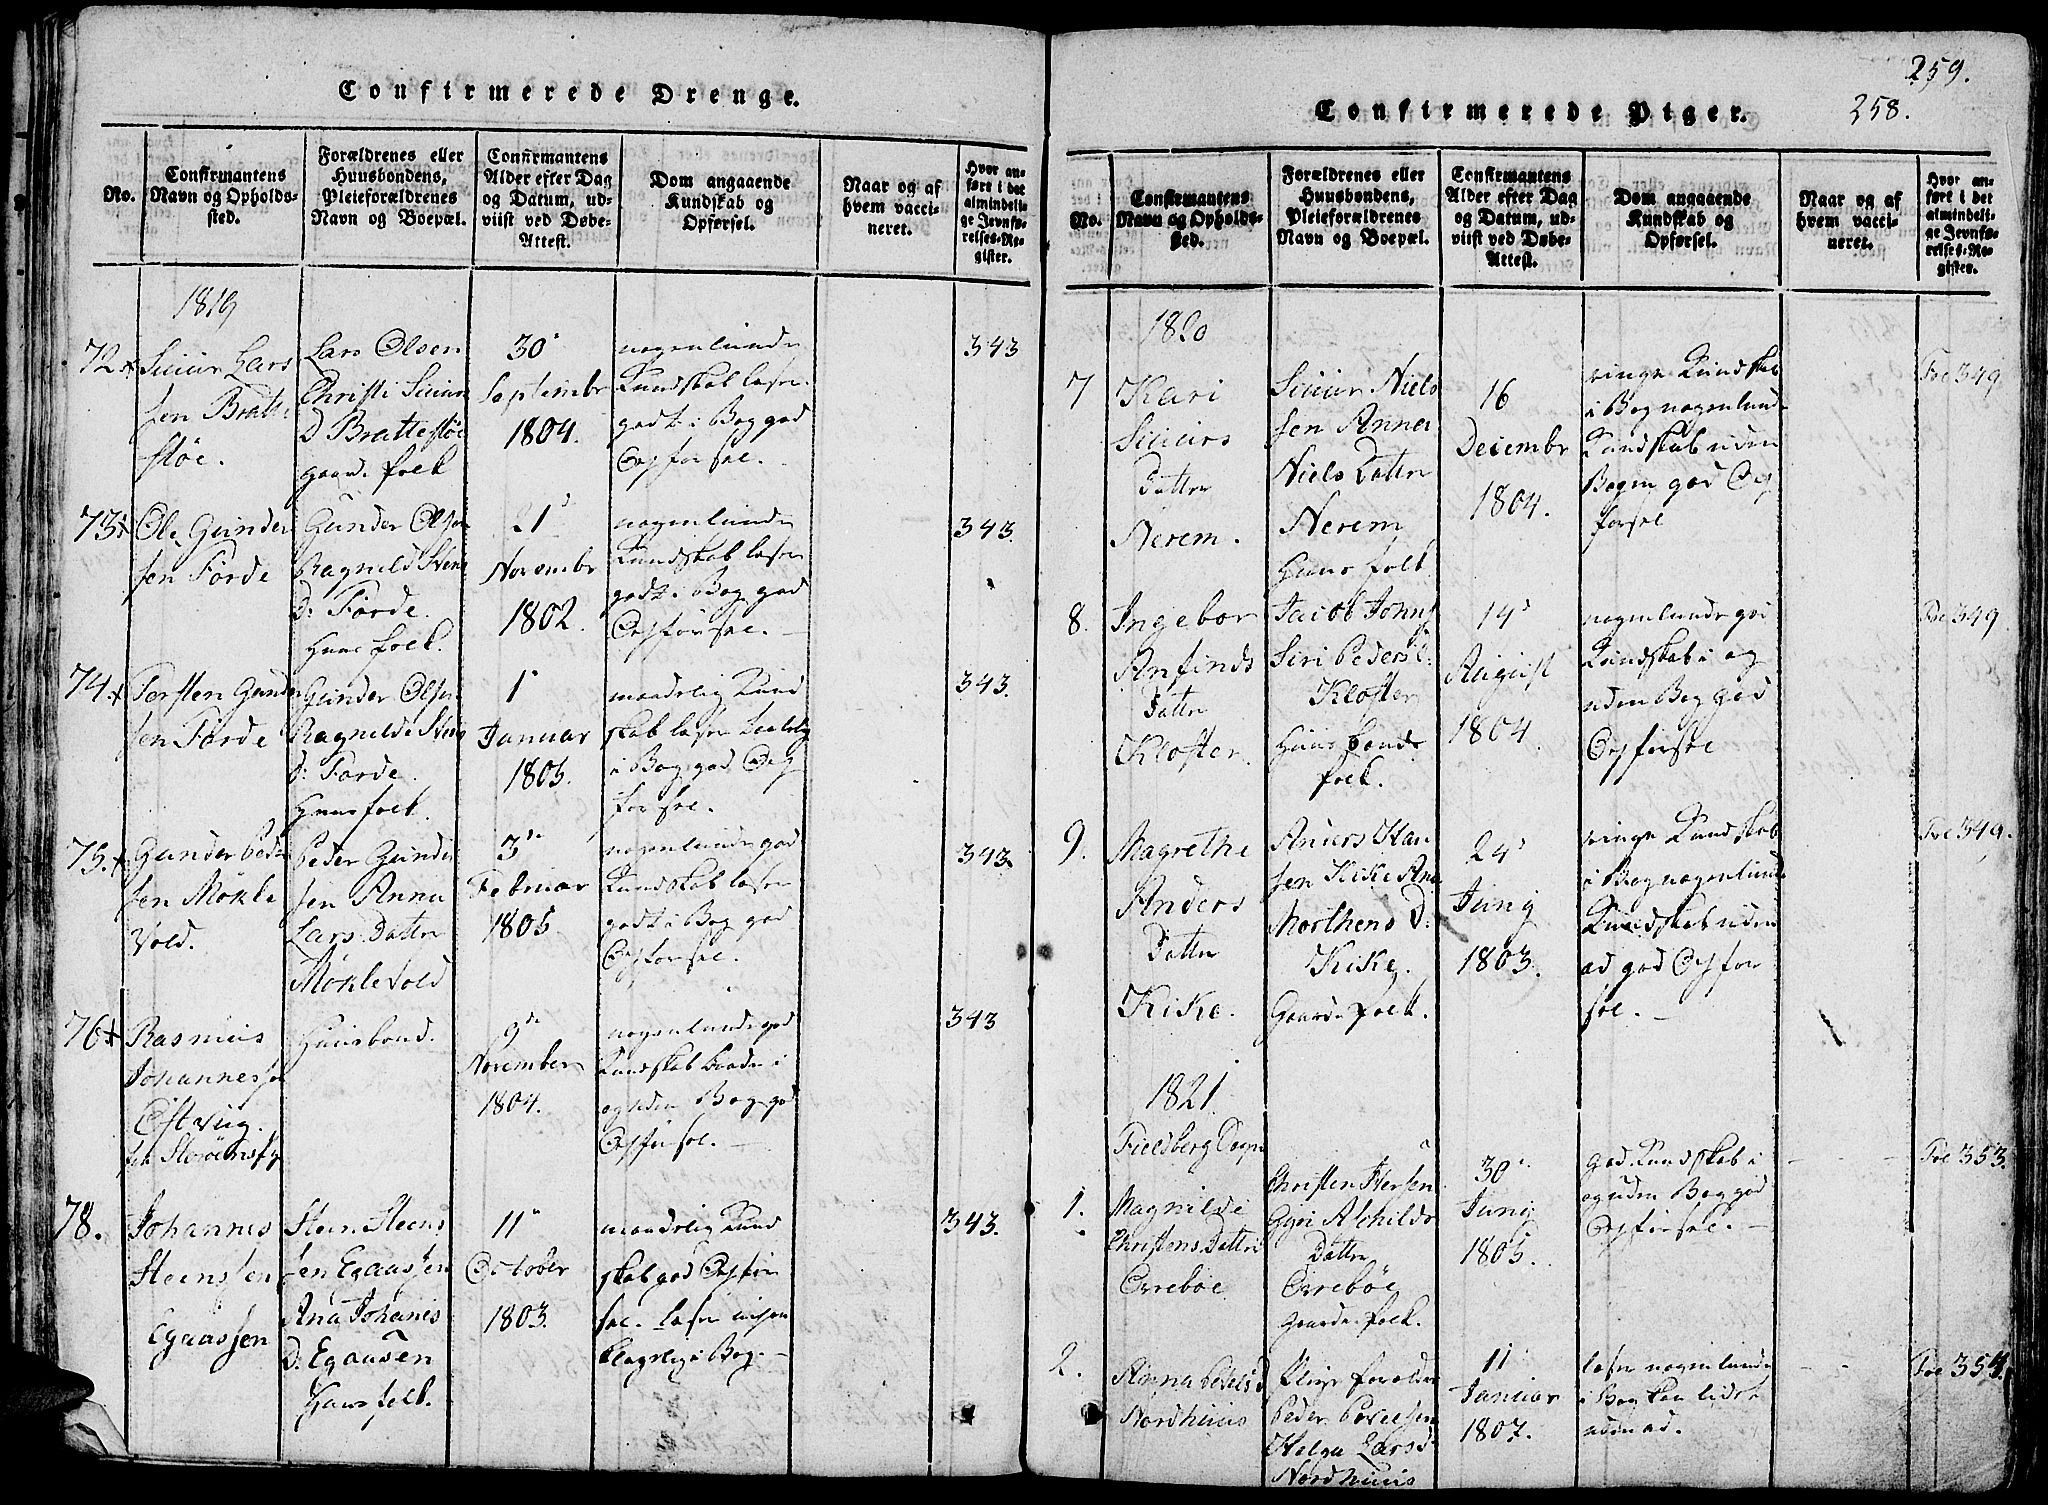 259.
258.
Confirmerede Drenge.
No.
Confirmantens
Navn og Opholds-
sted.
Forældrenes eller
Huusbondens,
Pleieforældrenes
Navn og Boepæl.
Confirmantens
Alder efter Dag
og Datum, ud-
viist ved Døbe-
Attest.
Dom angaaende
Kundskab og
Opførsel.
Naar og af
hvem vacci-
neret.
Hvor an-
ført i det
almindeli-
ge Jevnfø-
relses-Re-
gister.
1819
72
Siuur Lars
sen Bratte
støe.
Lars Olsen
Christi Siuurs
D Brattestøe
gaard folk
30
Septembr
1804.
nogenlunde
Kundskab læser
godt i Bog god
Opførsel.
343
73
Ole Gunder
sen Førde
Gunder Olsen
Ragnild Stens
D: Førde.
Huusfolk.
21
Novembr
1802.
nogenlunde
Kundskab læser
godt i Bog god
Opførsel.
343.
74
Torsten Gunder
sen Førde
Gunder Olsen
Ragnilde Stens
d: Førde.
Huusfolk.
1
Januar
1805.
maadelig Kund
skab læser
i Bog god Op
førsel.
343.
75.
Gunder Peder
sen Møkle
Vold.
Peder Gunder
sen Anna
Lars Datter
Møklevold
3
Februar
1805
nogenlunde god
Kundskab læser
godt i Bog god
Opførsel.
343
76
Rasmus
Johannessen
Huusbond.
9de
November
1804.
nogenlunde god
Kundskab baade i
og uden Bog god
Opførsel.
343
78.
Johannes
Steensen
Egaassen
Steen Steens
sen Egaassen
Ana Johanes
D: Egaasen
Huusfolk.
11
October
1803.
maadelig Kund
skab god Opfør
sel. læser
i Bog.
343.
Confirmerede Piger.
No.
Confirmantens
Navn og Opholds-
sted.
Forældrenes eller
Huusbondens,
Pleieforældrenes
Navn og Boepæl.
Confirmantens
Alder efter Dag
og Datum, ud-
viist ved Døbe-
Attest.
Dom angaaende
Kundskab og
Opførsel.
Naar og af
hvem vacci-
neret.
Hvor an-
ført i det
almindeli-
ge Jevnfø-
relses-Re-
gister.
1820
7
Kari
Siuurs
Datter
Nerem.
Siuur Niels
sen Anna
Niels Datter
Nerem
Huusfolk
16
Decembr
1804.
ringe Kundskab
i Bog nogenlunde
Kundskab uden
Bogen god Op
førsel
Foe 349
8.
Ingebor
Anfinds
Datter
Kloster.
Jacob Johns
Siri Peders d:
Kloster
Huusbonds
folk.
14
August
1804.
nogenlunde god
Kundskab i og
uden Bog god
Opførsel
Foe 349
9.
Magrethe
Anders
Datter
Kike.
Anders Han
sen Kike Ana
Morthens D:
Kike.
Gaardefolk.
24
Juny
1803.
ringe Kundskab
i Bog nogenlunde
Kundskab uden
ad god Opfør
sel.
Foe 349.
1821.
Fieldberg Sogn
1.
Magnilde
Christens Datter
Orrebøe
Christen Iversen
Gyri Aschilds
Datter
Orrebøe
Gaardefolk.
30
Juny
1805.
god Kundskab i
og uden Bog god
Opførsel.
Foe 353.
2.
Anna Povels d
Nordhuus
Pleie forældre
Peder Povelsen
Helga Larsd
Nordhuus
11
Januar
1807.
læser nogenlunde
i Bog kan lidet
uden ad.
Foe 354.